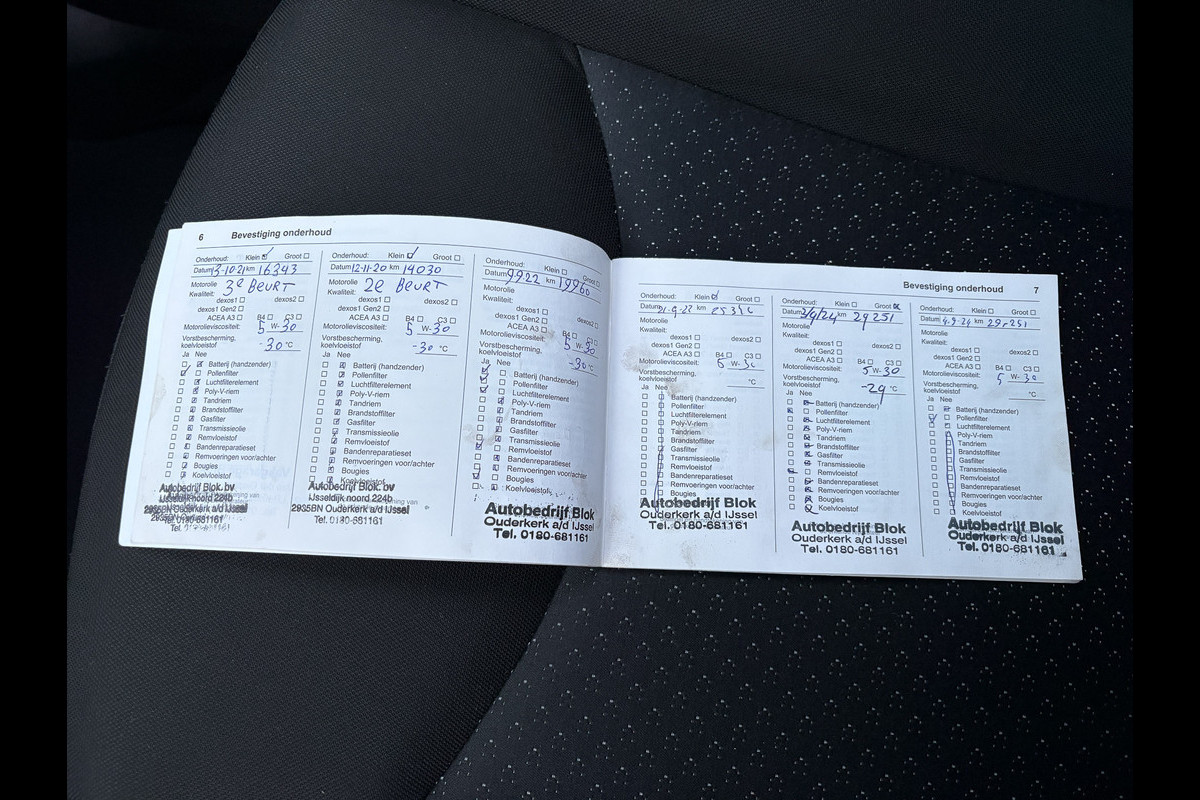 6 Bevestiging onderhoud
Onderhoud: Klein Groot
Datum 13-10-21 km 16343
Motorolie 3e BEURT
Kwaliteit:
dexos1 dexos2
dexos1 Gen2
ACEA A3 B4 C3
Motorolieviscositeit: 5 W-30
Vorstbescherming, koelvloeistof -30 °C
Ja Nee
Batterij (handzender)
Pollenfilter
Luchtfilterelement
Poly-V-riem
Tandriem
Brandstoffilter
Gasfilter
Transmissieolie
Remvloeistof
Bandenreparatieset
Remvoeringen voor/achter
Bougies
Koelvloeistof
Autobedrijf Blok bv
IJsseldijk noord 224b
2935BN Ouderkerk a/d IJssel
Tel. 0180-681161
Onderhoud: Klein Groot
Datum 12-11-20 km 14030
Motorolie 2e BEURT
Kwaliteit:
dexos1 dexos2
dexos1 Gen2
ACEA A3 B4 C3
Motorolieviscositeit: 5 W-30
Vorstbescherming, koelvloeistof -30 °C
Ja Nee
Batterij (handzender)
Pollenfilter
Luchtfilterelement
Poly-V-riem
Tandriem
Brandstoffilter
Gasfilter
Transmissieolie
Remvloeistof
Bandenreparatieset
Remvoeringen voor/achter
Bougies
Koelvloeistof
Autobedrijf Blok bv
IJsseldijk noord 224b
2935BN Ouderkerk a/d IJssel
Tel. 0180-681161
Onderhoud: Klein Groot
Datum 9922 km 19960
Motorolie
Kwaliteit:
dexos1 dexos2
dexos1 Gen2
ACEA A3 B4 C3
Motorolieviscositeit: 5 W-30
Vorstbescherming, koelvloeistof -30 °C
Ja Nee
Batterij (handzender)
Pollenfilter
Luchtfilterelement
Poly-V-riem
Tandriem
Brandstoffilter
Gasfilter
Transmissieolie
Remvloeistof
Bandenreparatieset
Remvoeringen voor/achter
Bougies
Koelvloeistof
Autobedrijf Blok
Ouderkerk a/d IJssel
Tel. 0180-681161
Bevestiging onderhoud 7
Onderhoud: Klein Groot
Datum km
Motorolie
Kwaliteit:
dexos1 dexos2
dexos1 Gen2
ACEA A3 B4 C3
Motorolieviscositeit: 5 W-30
Vorstbescherming, koelvloeistof °C
Ja Nee
Batterij (handzender)
Pollenfilter
Luchtfilterelement
Poly-V-riem
Tandriem
Brandstoffilter
Gasfilter
Transmissieolie
Remvloeistof
Bandenreparatieset
Remvoeringen voor/achter
Bougies
Autobedrijf Blok
Ouderkerk a/d IJssel
Tel. 0180-681161
Onderhoud: Klein Groot
Datum km 29251
Motorolie
Kwaliteit:
dexos1 dexos2
dexos1 Gen2
ACEA A3 B4 C3
Motorolieviscositeit: 5 W-30
Vorstbescherming, koelvloeistof -29 °C
Ja Nee
Batterij (handzender)
Pollenfilter
Luchtfilterelement
Poly-V-riem
Tandriem
Brandstoffilter
Gasfilter
Transmissieolie
Remvloeistof
Bandenreparatieset
Remvoeringen voor/achter
Bougies
Koelvloeistof
Autobedrijf Blok
Ouderkerk a/d IJssel
Tel. 0180-681161
Onderhoud: Klein Groot
Datum 4.9.24 km
Motorolie
Kwaliteit:
dexos1 dexos2
dexos1 Gen2
ACEA A3 B4 C3
Motorolieviscositeit: 5 W-30
Vorstbescherming, koelvloeistof °C
Ja Nee
Batterij (handzender)
Pollenfilter
Luchtfilterelement
Poly-V-riem
Tandriem
Brandstoffilter
Gasfilter
Transmissieolie
Remvloeistof
Bandenreparatieset
Remvoeringen voor/achter
Bougies
Koelvloeistof
Autobedrijf Blok
Ouderkerk a/d IJssel
Tel. 0180-681161